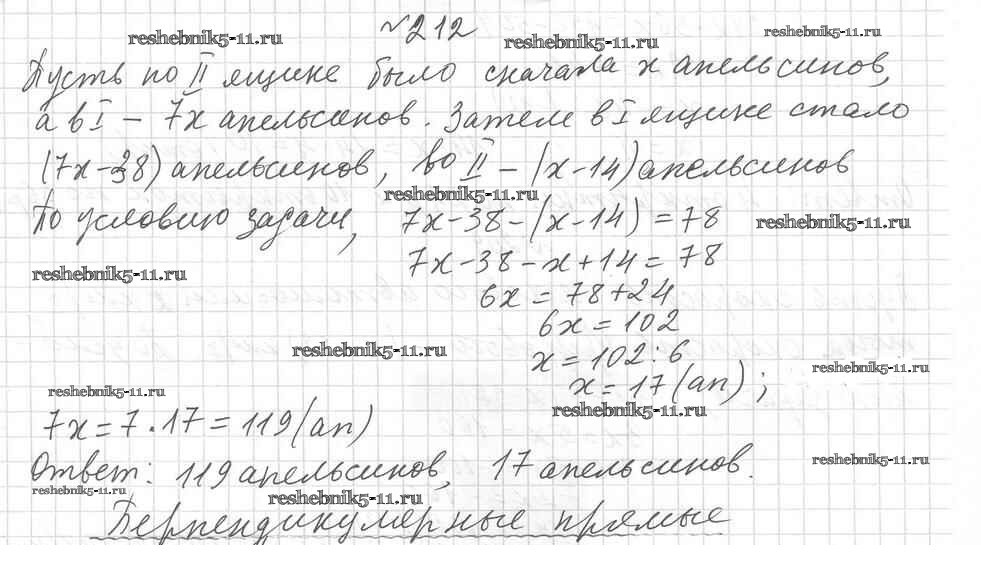 №212
Пусть во II ящике было сначала x апельсинов,
а в I – 7x апельсинов. Затем в I ящике стало
(7x-38) апельсинов, во II – (x-14) апельсинов
По условию задачи, 7x-38-(x-14)=78
7x-38-x+14=78
6x=78+24
6x=102
x=102:6
x=17(ап);
7x=7·17=119(ап)
Ответ: 119 апельсинов, 17 апельсинов.
Перпендикулярные прямые
reshebnik5-11.ru
reshebnik5-11.ru
reshebnik5-11.ru
reshebnik5-11.ru
reshebnik5-11.ru
reshebnik5-11.ru
reshebnik5-11.ru
reshebnik5-11.ru
reshebnik5-11.ru
reshebnik5-11.ru
reshebnik5-11.ru
reshebnik5-11.ru
reshebnik5-11.ru